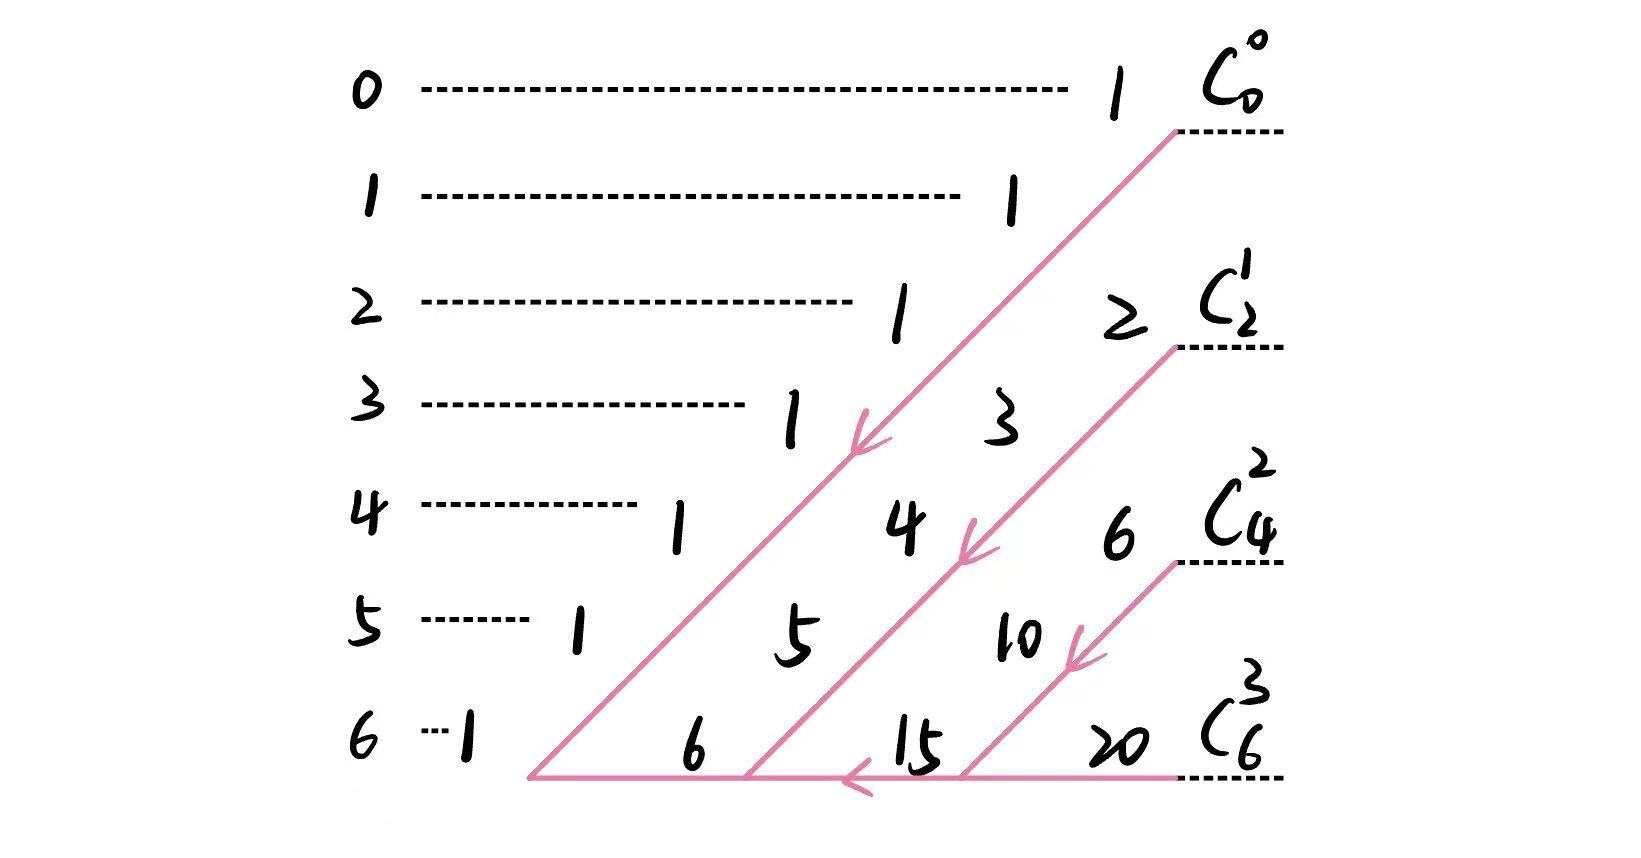 0 1 C₀⁰
1 1
2 1 2 C₂¹
3 1 3
4 1 4 6 C₄²
5 1 5 10
6 1 6 15 20 C₆³